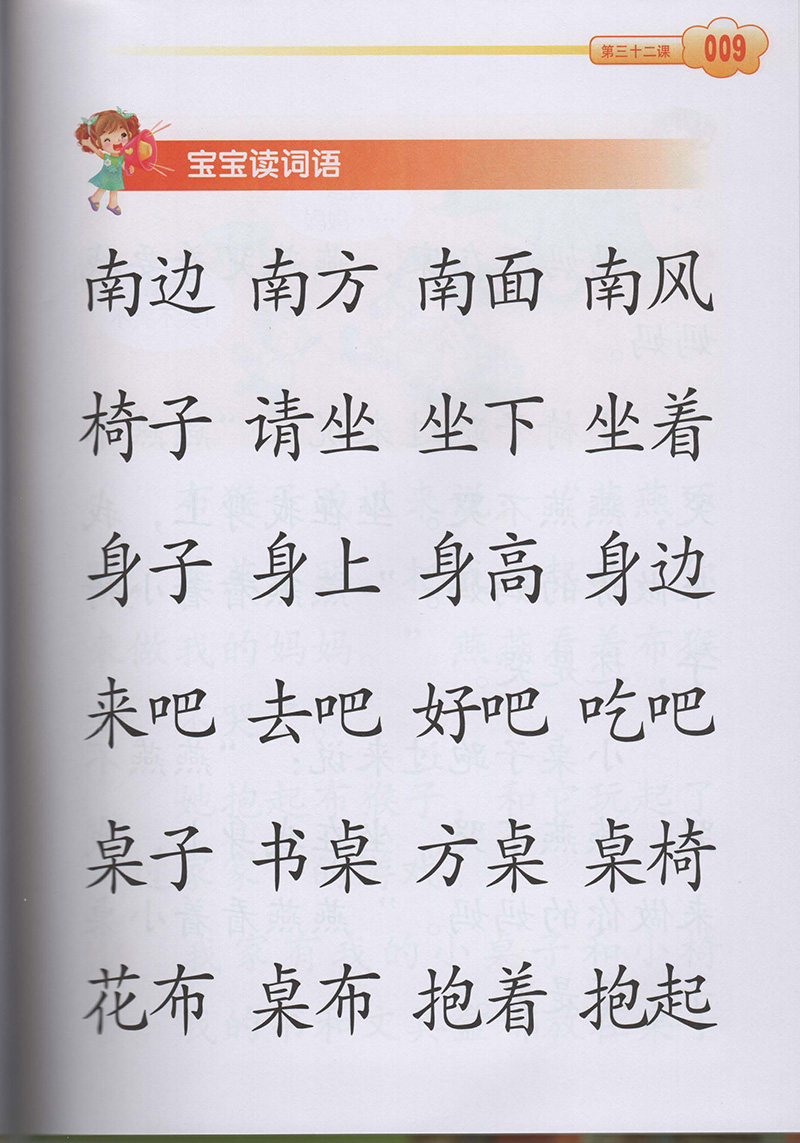 第三十二课 009
宝宝读词语
南边 南方 南面 南风
椅子 请坐 坐下 坐着
身子 身上 身高 身边
来吧 去吧 好吧 吃吧
桌子 书桌 方桌 桌椅
花布 桌布 抱着 抱起